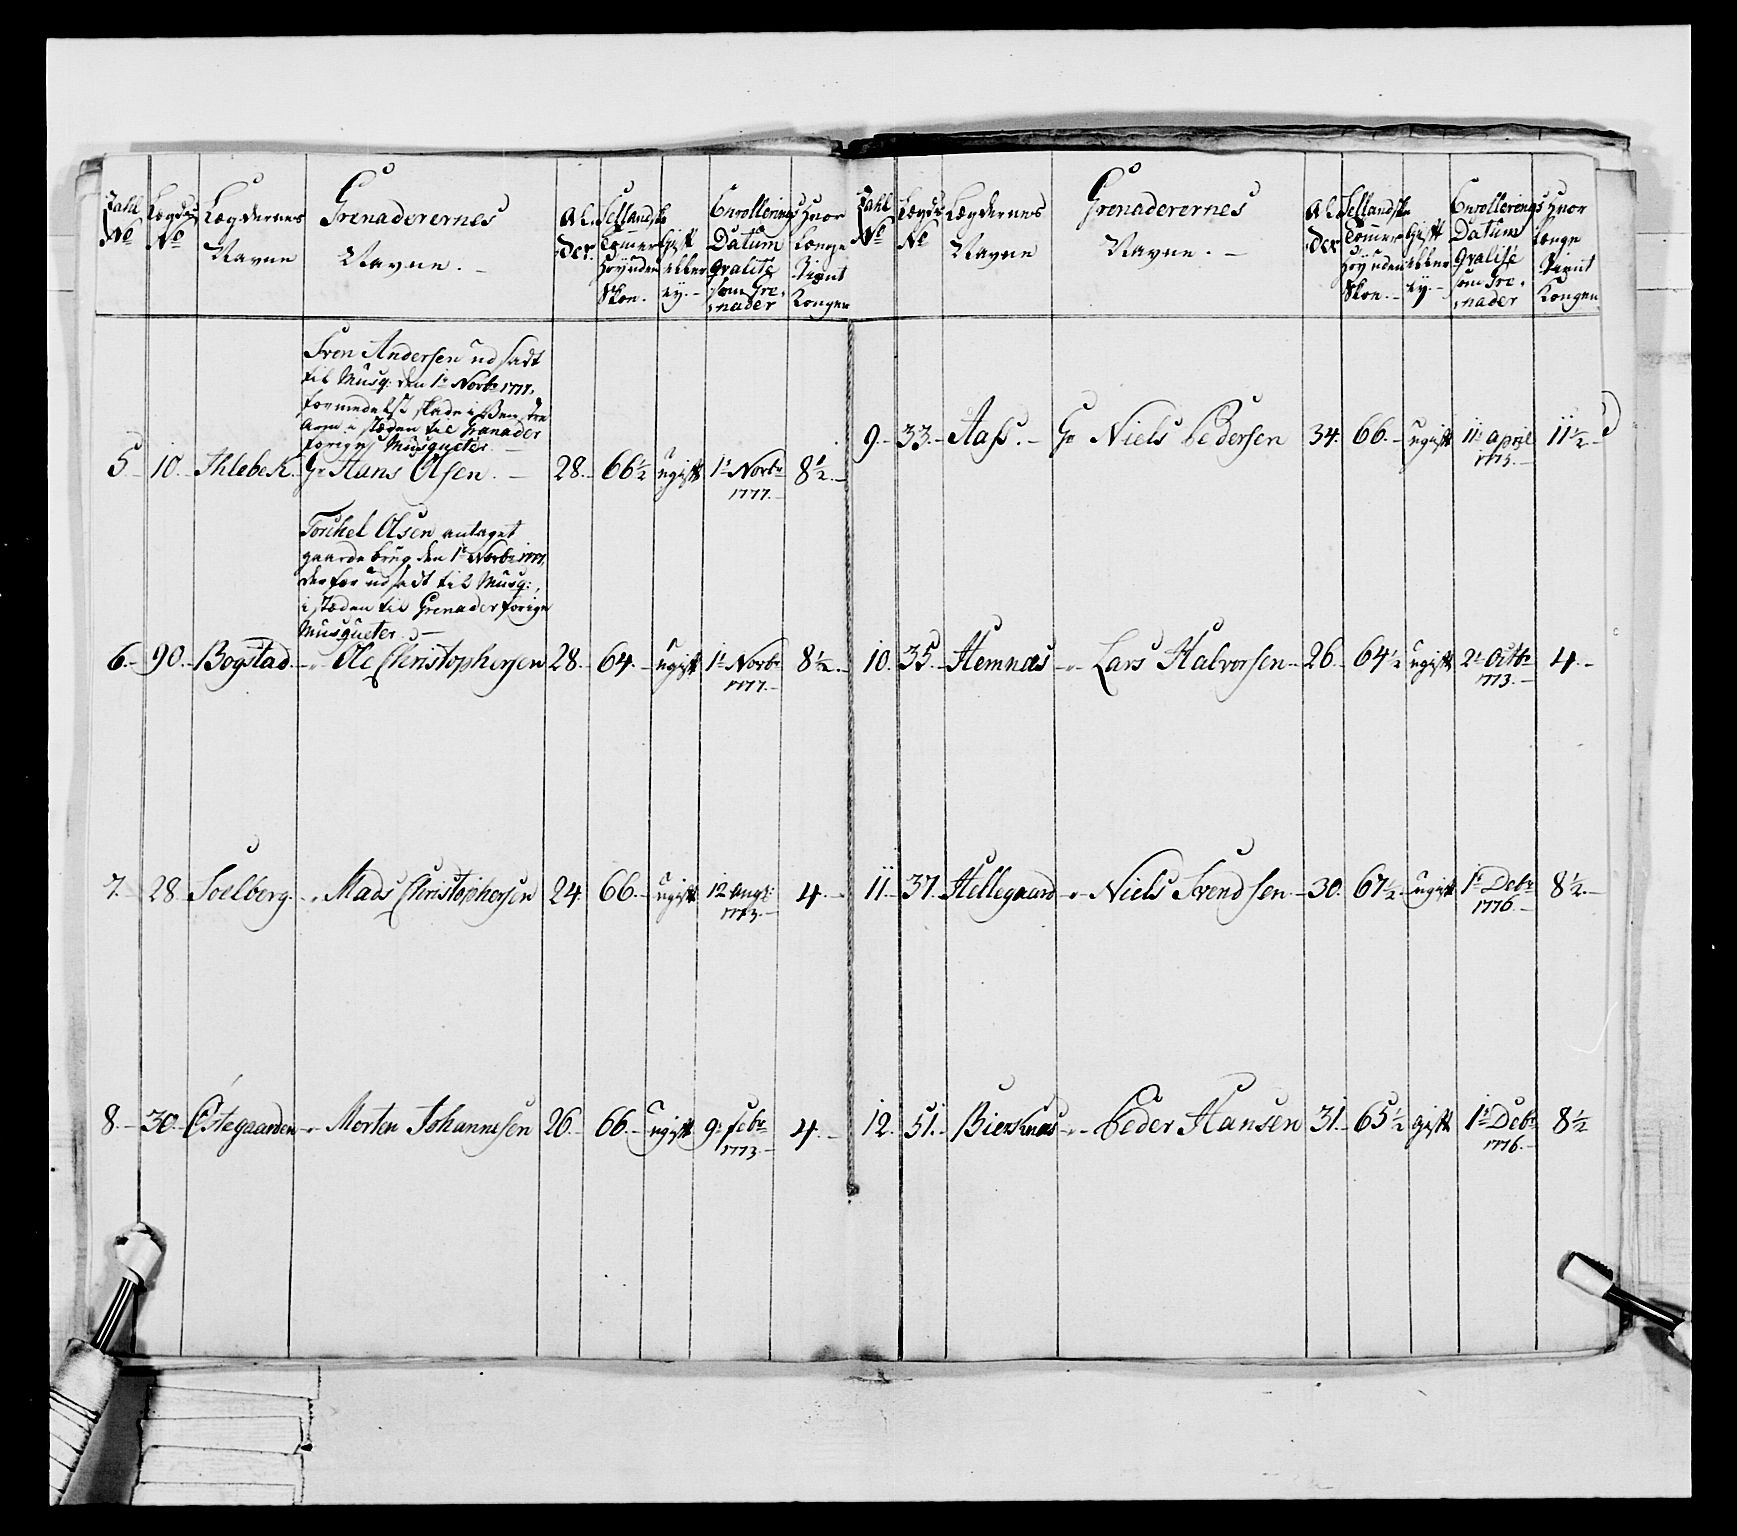 Tahl No
Lægds No
Lægdernes Navne
Grenaderernes Navne. –
Al-der.
Sellandske Tommer Höy uden Skoe.
Gift eller ey. –
Enrollerings Datum Qvalité som Gre-nader
Hvor Længe Tient Kongen
Sven Andersen udsadt
til Musq: den 1te Novbr 1777.
formedelst skade i Been
Arm i stæden til Granader
forige Musqueter. –
5. – 10. – Ihlebek. Gr Hans Olsen. – 28. – 66½ ugift 1te Novbr 1777. – 8½. –
Torkel Olsen antaget
gaarde brug den 1te Novbr 1777.
derfor udsadt til Musq:,
i stæden til Grenader forige
Musqueter. –
6. – 90. – Bogstad. – " Ole Christophersen 28. – 64. – ugift 1te Novbr 1777. – 8½. –
7. – 28. Soelberg. – " Mads Christophersen 24. 66. – ugift 12 Augt: 1773. – 4. –
8. – 30. – Östegaarden – " Morten Johannesen 26. – 66. – ugift 9de Febr 1773. – 4. –
Tahl No
Lægds No
Lægdernes Navne
Grenaderernes Navne. –
Al-der
Sellandske Tommer Höy uden Skoe. –
Gift eller ey. –
Enrollerings Datum Qvalité som Gre-nader
Hvor Længe Tient Kongen
9. – 33. – Aass. – Gr Niels Pedersen 34. 66. – ugift 11te April 1775. – 11½. –
10. 35. – Hemnæs – " – Lars Halvorsen – 26. – 64½ ugift 2de Octbr 1773. – 4. –
11. – 37. Hellegaard – " – Niels Svendsen – 30. 67½. – ugift 1te Debr 1776. – 8½. –
12. 51. – Bierknæs – " – Peder Hansen 31. – 65½ gift 1te Debr 1776. – 8½